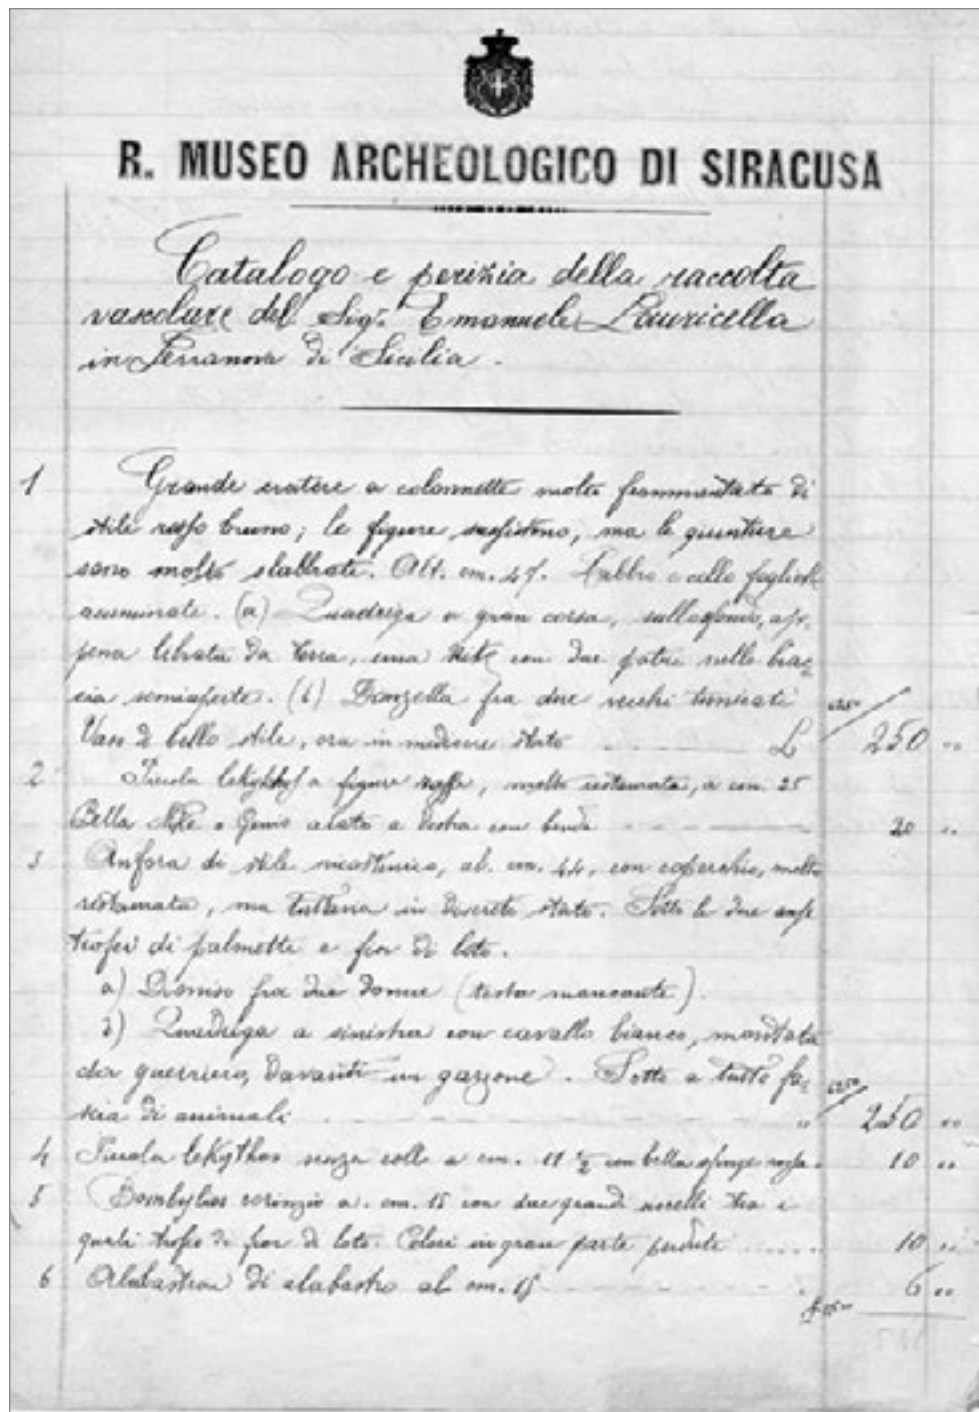 R. MUSEO ARCHEOLOGICO DI SIRACUSA
Catalogo e perizia della raccolta
vascolare del Sigr. Emanuele Lauricella
in Terranova di Sicilia.
1 Grande cratere a colonnette molto frammentato di
stile rosso bruno; le figure sussistono, ma le giunture
sono molto slabbrate. Alt. cm. 47. Labbro e collo
(a) Quadriga a gran corsa, ap-
pena librata da terra, una Nike con due patere nelle brac-
cia semiaperte. (b) Donzella fra due vecchi tunicati
Vaso di bello stile, ora in mediocre stato L 250 "
2 Piccola lekythos a figure rosse, molto restaurata, a cm. 25
Bella Nike o Genio alato a destra con benda 20 "
3 Anfora di stile nicostenico, al. cm. 44, con coperchio, molto
restaurata, ma tuttavia in discreto stato. Sotto le due anse
trofei di palmette e fior di loto.
a) Dioniso fra due donne (testa mancante).
b) Quadriga a sinistra con cavallo bianco, montata
da guerriero, davanti un garzone. Sotto a tutto fa-
scia di animali " 250 "
4 Piccola lekythos senza collo a cm. 11 ½ con bella sfinge rossa 10 "
5 Bombylios corinzio a. cm. 15 con due grandi uccelli tra i
quali trofeo di fior di loto. Colori in gran parte perduti 10 "
6 Alabastron di alabastro al cm. 15 6 "